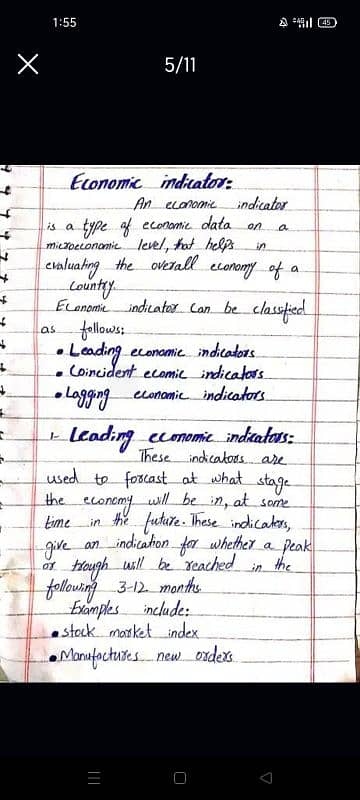 1:55
45
5/11
Economic indicator:
An economic indicator
is a type of economic data on a
microeconomic level, that helps in
evaluating the overall economy of a
country.
Economic indicator can be classified
as follows:
• Leading economic indicators
• Coincident ecomic indicators
• Lagging economic indicators
1- Leading economic indicators:
These indicators are
used to forcast at what stage
the economy will be in, at some
time in the future. These indicators,
give an indication for whether a peak
or trough will be reached in the
following 3-12 months.
Examples include:
• stock market index
• Manufactures new orders